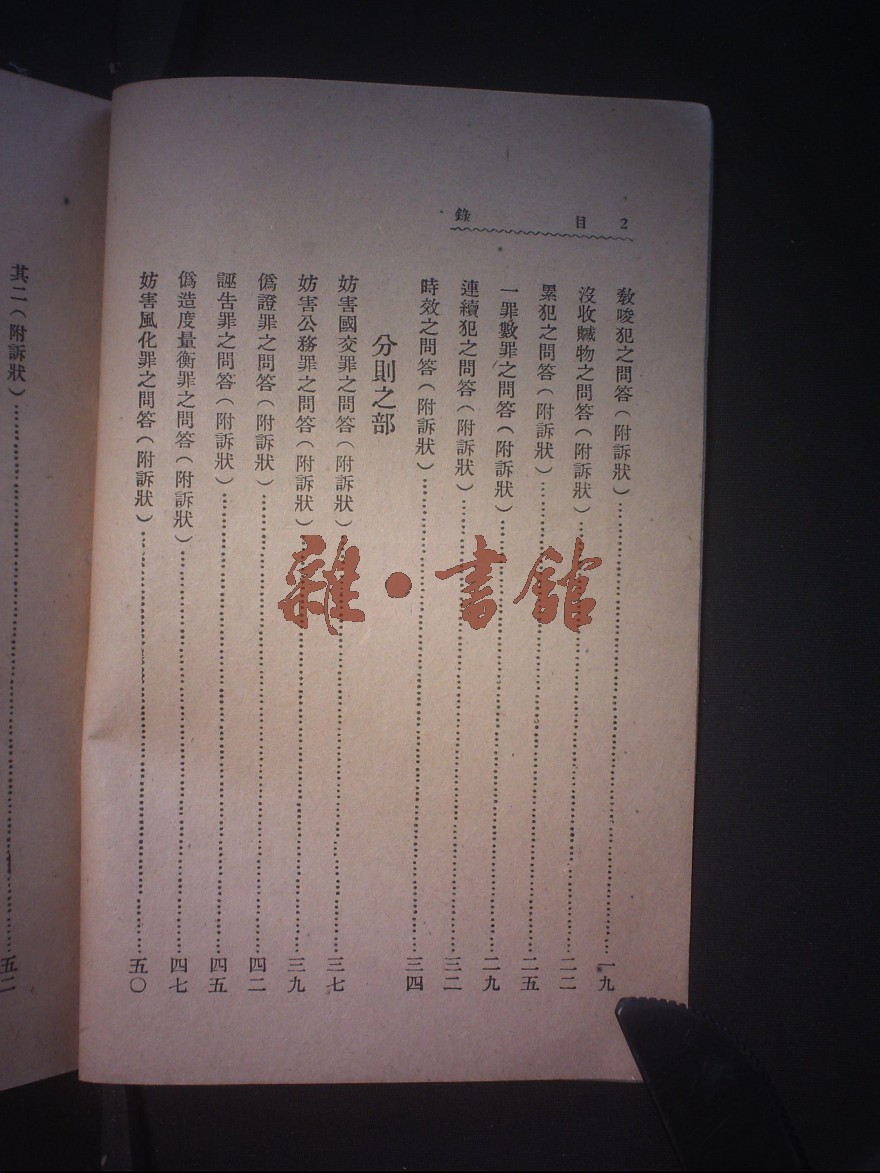 2 目錄
教唆犯之問答（附訴狀）……一九
沒收贓物之問答（附訴狀）……二二
累犯之問答（附訴狀）……二五
一罪數罪之問答（附訴狀）……二九
連續犯之問答（附訴狀）……三二
時效之問答（附訴狀）……三四
分則之部
妨害國交罪之問答（附訴狀）……三七
妨害公務罪之問答（附訴狀）……三九
僞證罪之問答（附訴狀）……四二
誣告罪之問答（附訴狀）……四五
僞造度量衡罪之問答（附訴狀）……四七
妨害風化罪之問答（附訴狀）……五〇
其二（附訴狀）……五二
雜·書館